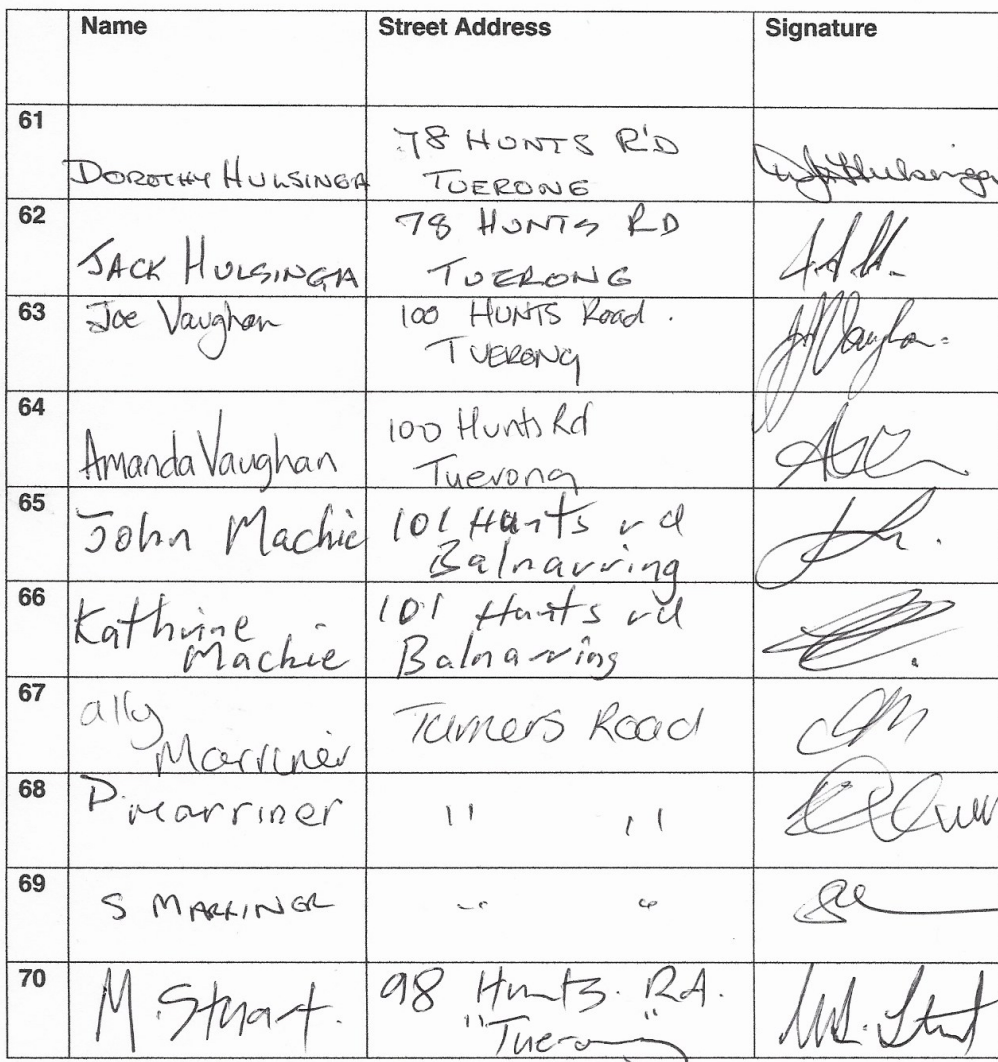 Name Street Address Signature
61
DOROTHY HULSINGA
78 HUNTS R'D
TUERONG
62
JACK HULSINGA
78 HUNTS RD
TUERONG
63
Joe Vaughan
100 HUNTS Road.
TUERONG
J Vaughan
64
Amanda Vaughan
100 Hunts Rd
Tuerong
65
John Machie
101 Hunts rd
Balnarring
66
Kathrine
Machie
101 Hunts rd
Balnarring
67
ally
Marriner
Turners Road
68
P marriner
" "
69
S MARRINER
" "
70
M. Stuart.
98 Hunts. Rd.
"Tuerong"